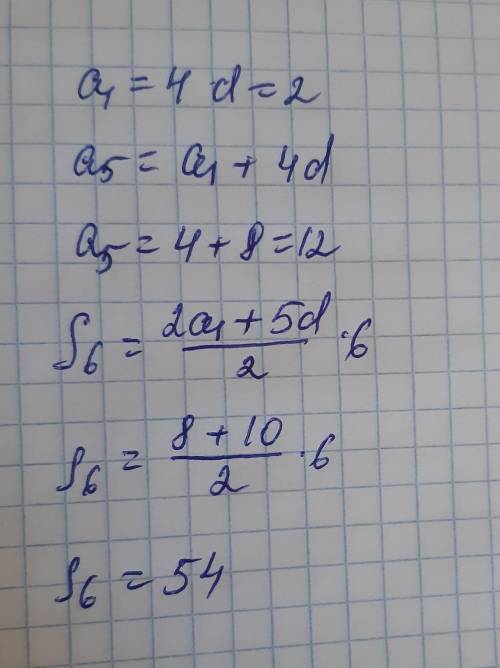 a₁ = 4 d = 2
a₅ = a₁ + 4d
a₅ = 4 + 8 = 12
S₆ = (2a₁ + 5d)/2 · 6
S₆ = (8 + 10)/2 · 6
S₆ = 54